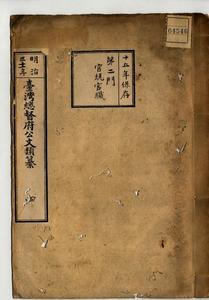 04546
十五年保存
第二門
官規官職
明治
三十三年
臺灣總督府公文類纂